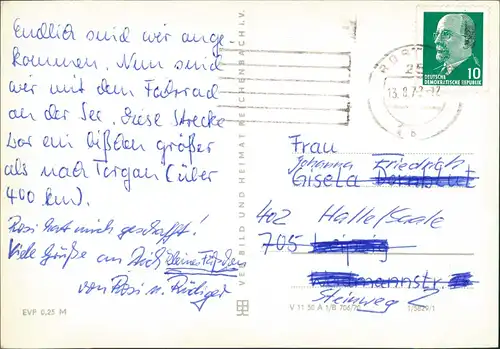 Endlich sind wir ange-
kommen. Nun sind
wir mit dem Fahrrad
an der See. Diese Strecke
war ein bißchen größer
als nach Torgau (über
400 km).
Rosi hat mich geschafft!
Viele Grüße an Dich
von Rosi u. Rüdiger
EVP 0,25 M
VEB BILD UND HEIMAT REICHENBACH I. V.
V 11 50 A 1/B 706/70 1/5829/1
25
13. 8. 7
DEUTSCHE
DEMOKRATISCHE REPUBLIK
10
Frau
Johanna Friedrich
Gisela Dornblut
402 Halle/Saale
705 Leipzig
mannstr.
Steinweg 2